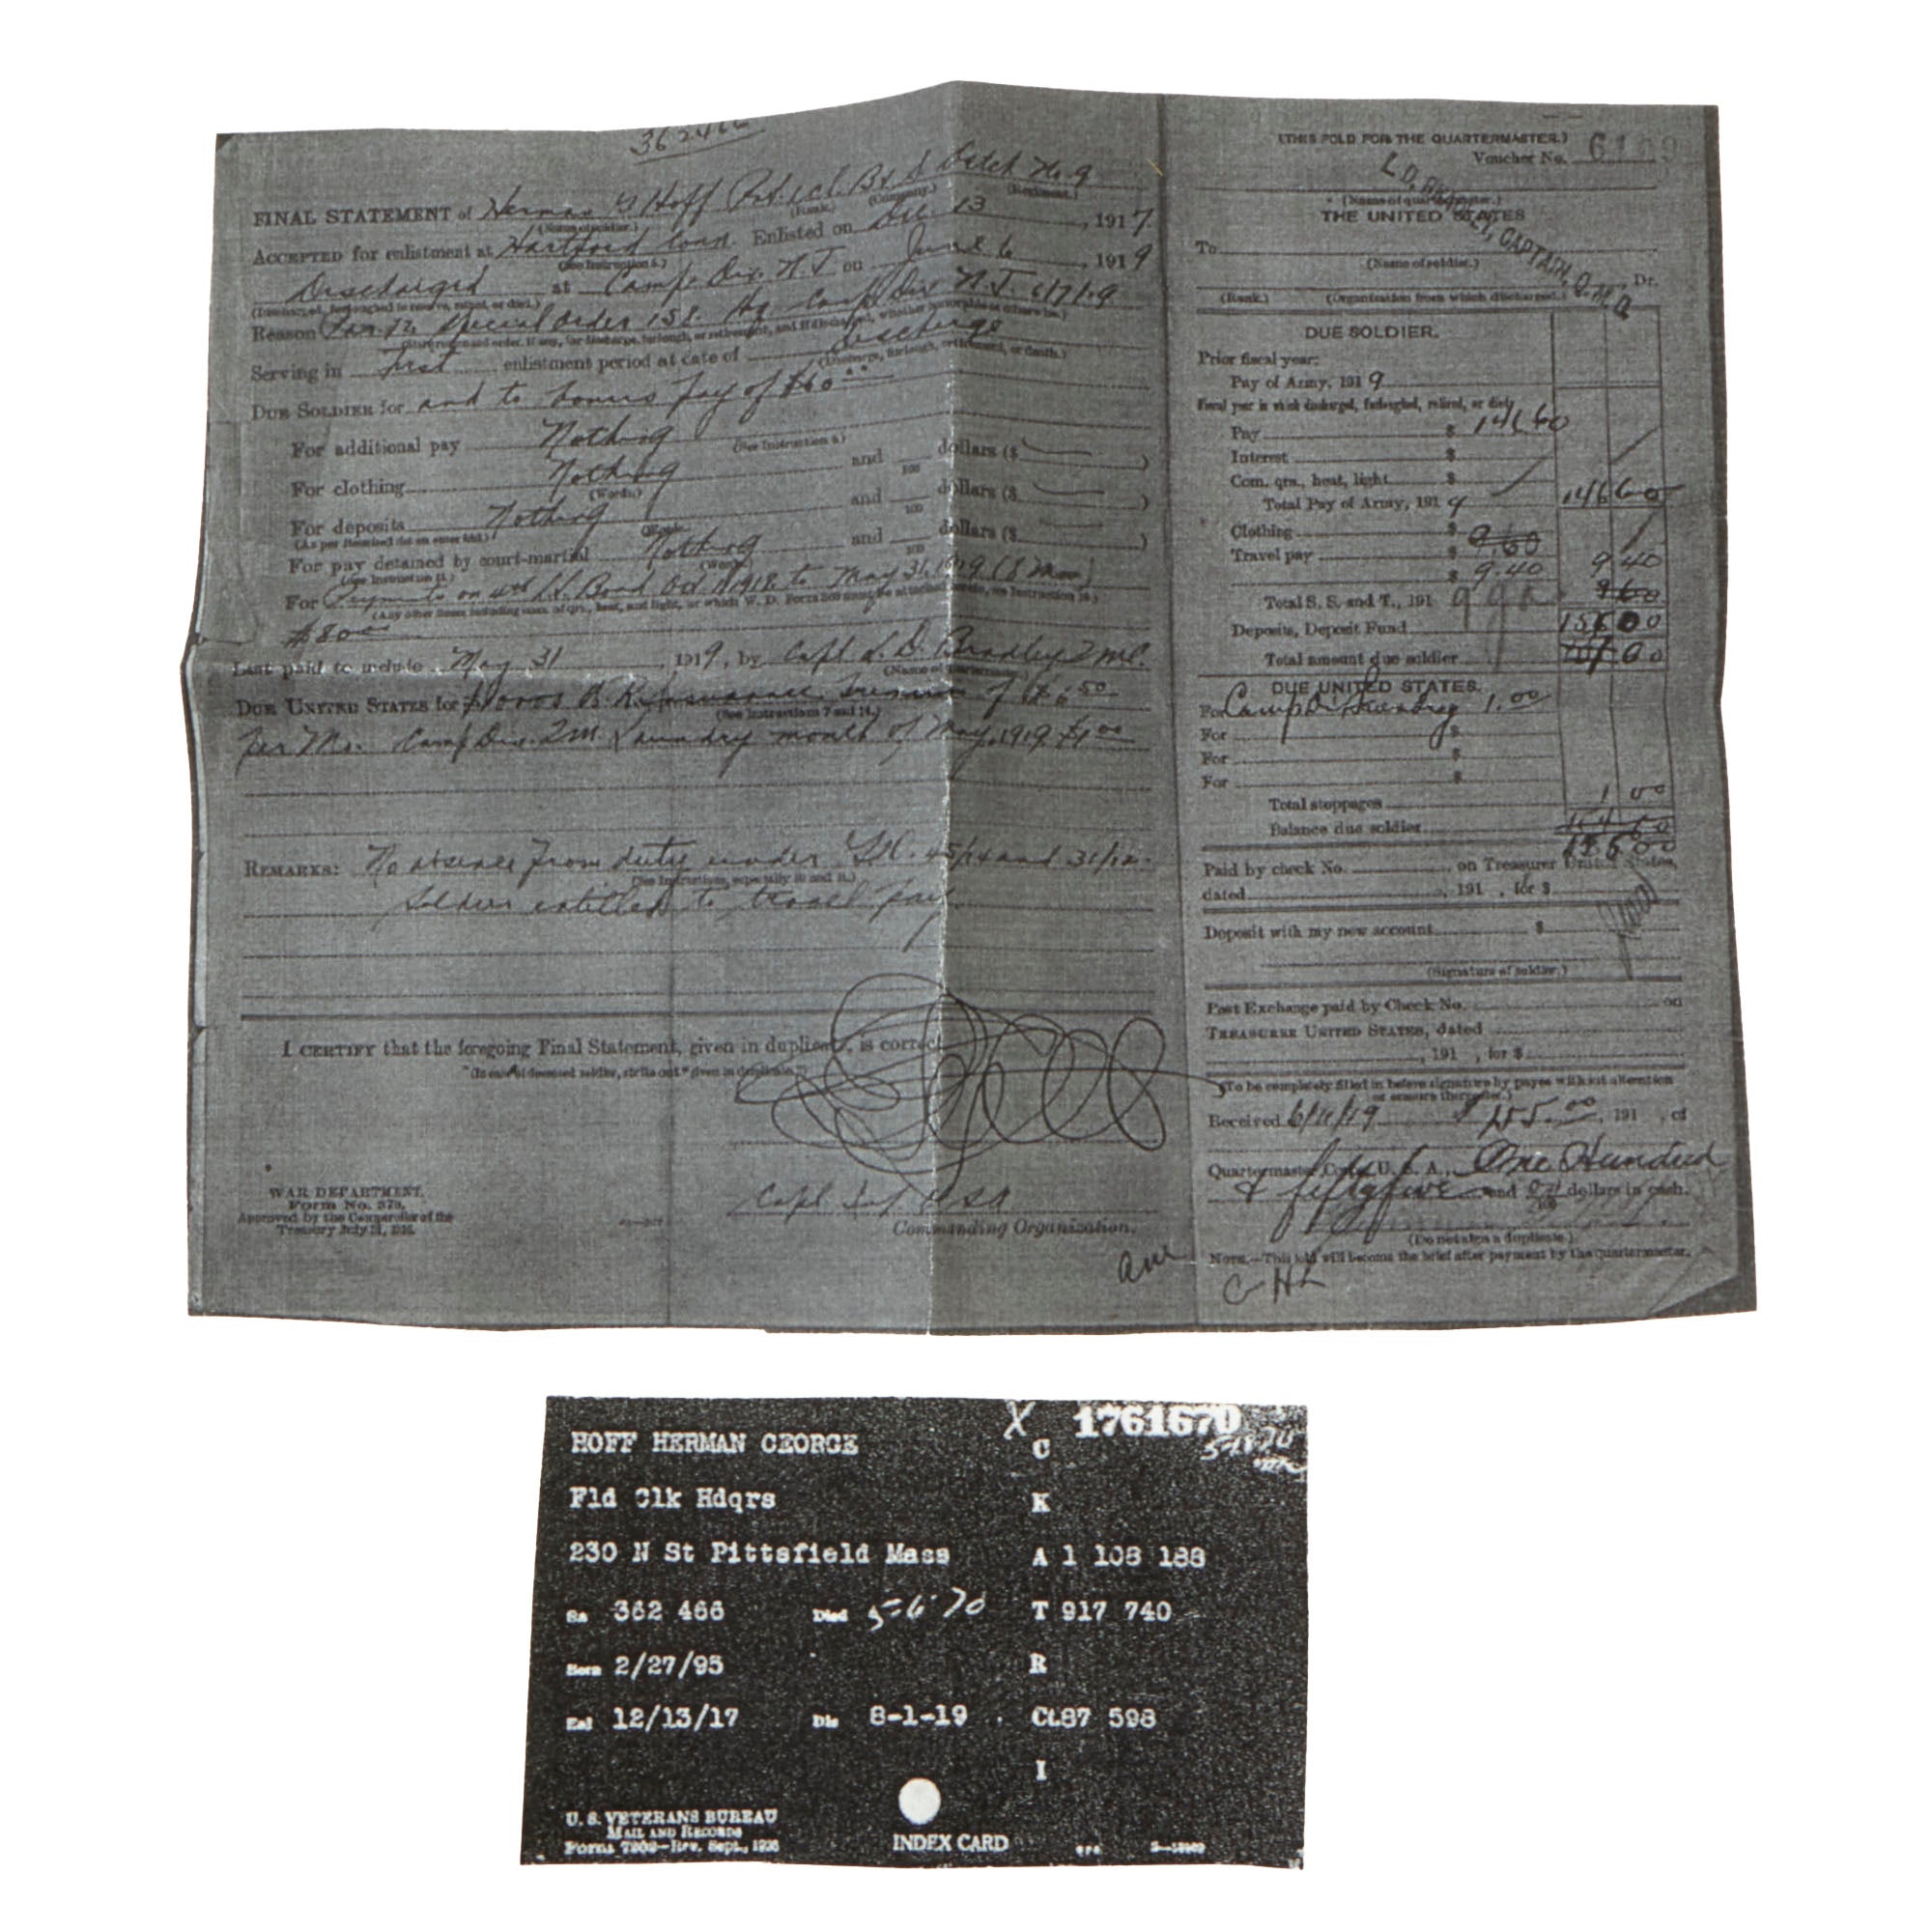 362466
FINAL STATEMENT of Herman G Hoff Pvt. 1 cl. Bt. Detch No. 9
(Name of soldier.) (Rank.) (Company.) (Regiment.)
ACCEPTED for enlistment at Hartford Conn. Enlisted on Dec. 13, 1917.
(See Instruction 5.)
Discharged at Camp Dix N.J. on June 6, 1919
Reason Par. 12 Special Order 158 Hq Camp Dix N.J. 6/7/19
Serving in First enlistment period at date of discharge
(Discharge, furlough, retirement, or death.)
DUE SOLDIER for and to bonus pay of $60.00
For additional pay Nothing
(See Instruction 8.)
For clothing Nothing and /100 dollars ($ )
(Words.)
For deposits Nothing and /100 dollars ($ )
For pay detained by court-martial Nothing and /100 dollars ($ )
(See Instruction 11.) (Words.)
For Payments on 4th L. Bond Oct 1 1918 to May 31, 1919 (8 Mos)
$80.00
Last paid to include May 31, 1919, by Capt L. D. Bradley QMC.
DUE UNITED STATES for B. R. Insurance Premium of $6.50
(See Instructions 7 and 14.)
per Mo. Camp Dix QM Laundry month of May, 1919 $1.00
REMARKS: No absence from duty under G.O. 45/14 and 31/12.
(See Instructions, especially 10 and 11.)
Soldier entitled to travel pay.
I CERTIFY that the foregoing Final Statement, given in duplicate, is correct
(In case of deceased soldier, strike out "given in duplicate.")
Capt Inf USA
Commanding Organization.
WAR DEPARTMENT.
Form No. 370.
Approved by the Comptroller of the
Treasury July 21, 1916.
(THIS FOLD FOR THE QUARTERMASTER.)
Voucher No. 6109
L. D. BRADLEY, CAPTAIN, Q. M. C.
(Name of quartermaster.)
THE UNITED STATES
To
(Name of soldier.)
Dr.
(Rank.) (Organization from which discharged.)
DUE SOLDIER.
Prior fiscal year:
Pay of Army, 1919
Fiscal year in which discharged, furloughed, retired, or died:
Pay $ 146.60
Interest $
Com. qrs., heat, light $
Total Pay of Army, 1919 146 60
Clothing $ 9.60
Travel pay $ 9.40 9 40
Total S. S. and T., 191 9 60
Deposits, Deposit Fund 156 00
Total amount due soldier
DUE UNITED STATES.
For Camp Dix Laundry 1.00
For $
For $
For $
Total stoppages 1 00
Balance due soldier 155 00
Paid by check No. on Treasurer United States,
dated , 191 , for $
Deposit with my new account $
(Signature of soldier.)
Post Exchange paid by Check No. on
TREASURER UNITED STATES, dated
, 191 , for $
(To be completely filled in before signature by payee without alteration
or erasure thereafter.)
Received 6/11/19 $155.00, 191 , of
Quartermaster Corps, U. S. A., One Hundred
& fifty five and 00/100 dollars in cash.
(Do not sign a duplicate.)
NOTE.—This fold will become the brief after payment by the quartermaster.
CHL
X 1761670
HOFF HERMAN GEORGE C
Fld Clk Hdqrs K
230 N St Pittsfield Mass A 1 108 188
Sn 362 466 Died 5-6-70 T 917 740
Born 2/27/95 R
Enl 12/13/17 Dis 8-1-19 Ct 87 598
I
U. S. VETERANS BUREAU
MAIL AND RECORDS
Form 7202—Rev. Sept., 1926
INDEX CARD